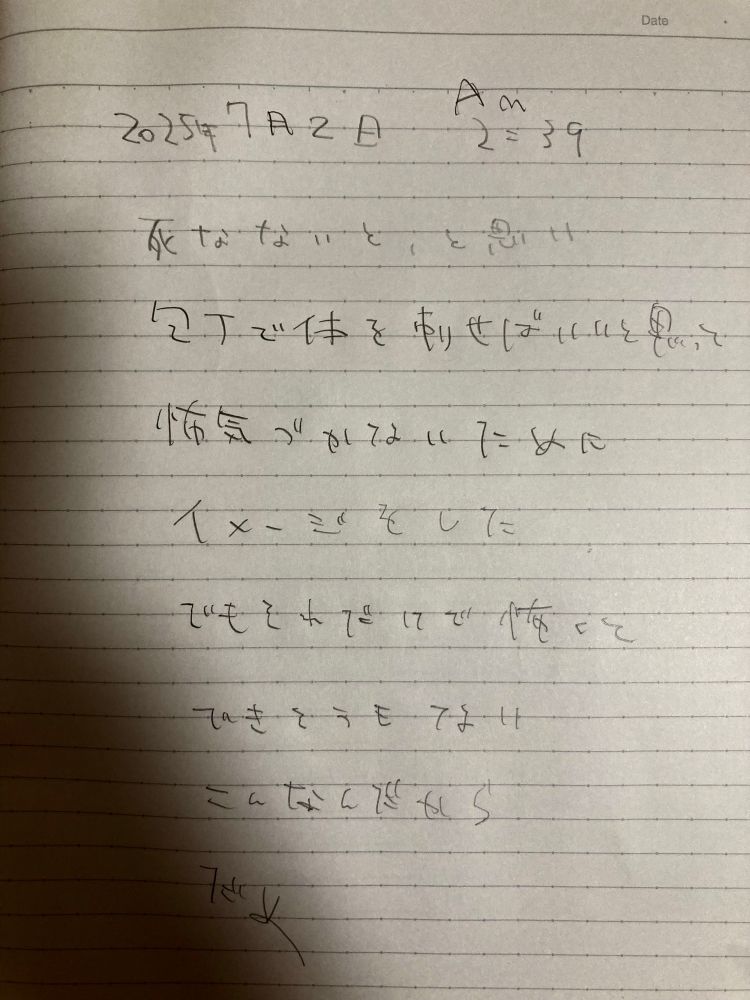 Date
2025年7月2日 Am 2:39
死なないと、と思い
包丁で体を刺せばいいと思って
怖気づかないために
イメージをした
でもそれだけで怖くて
できそうもない
こんなんだから
だめ